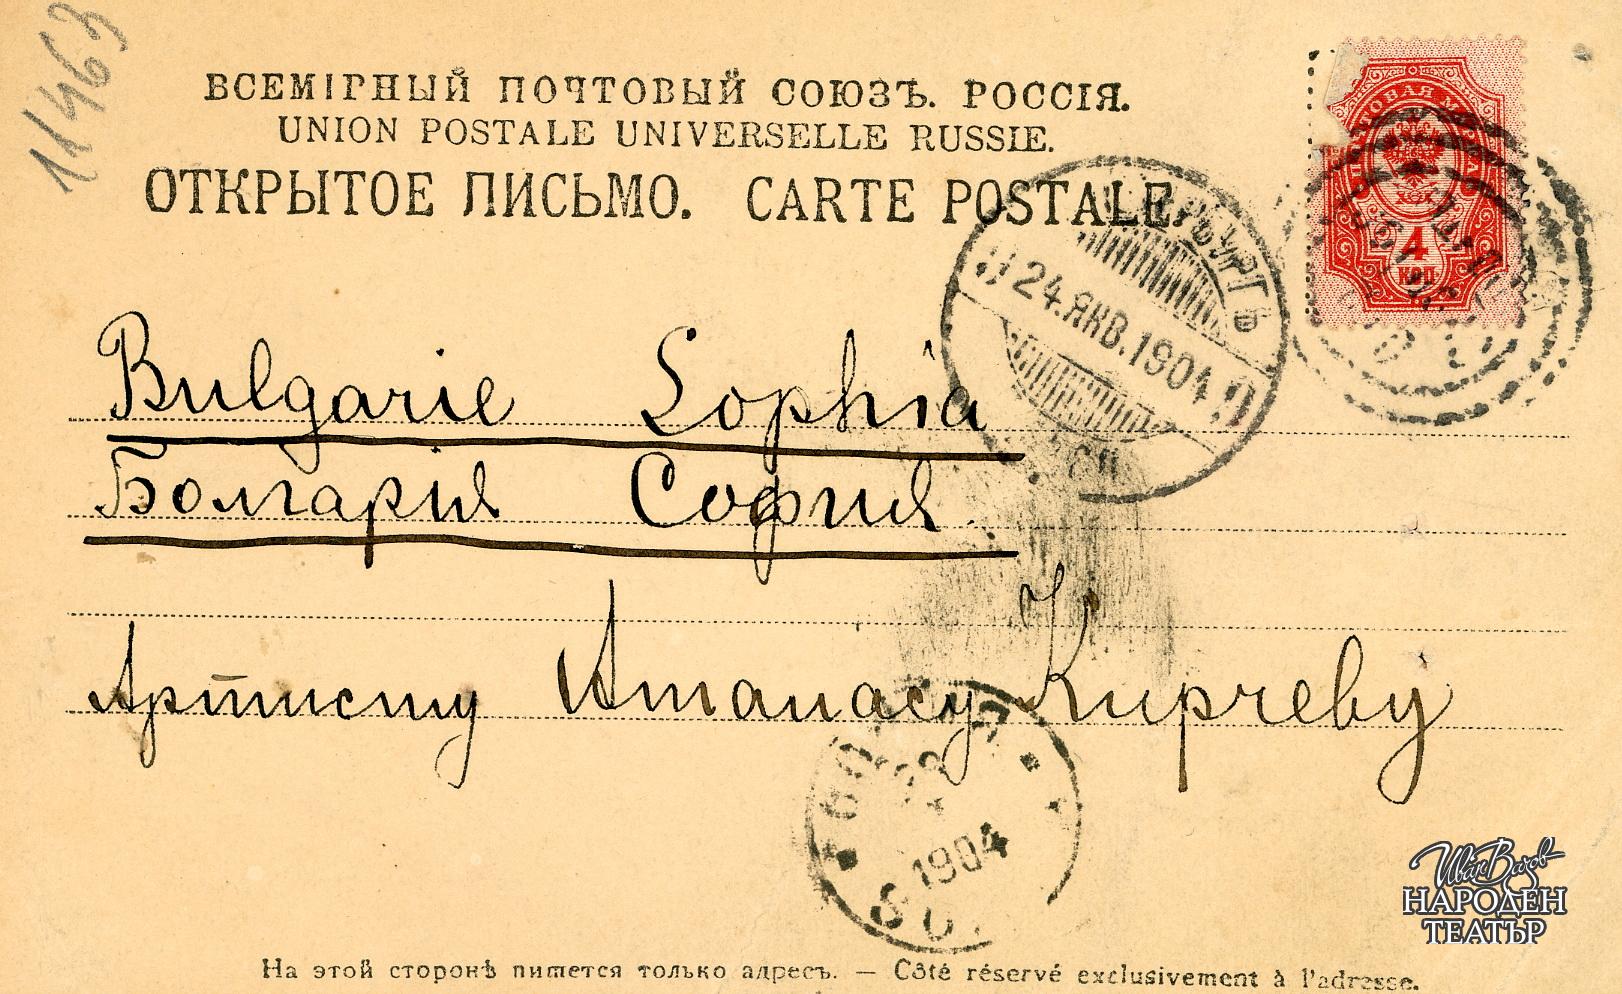 11463
ВСЕМІРНЫЙ ПОЧТОВЫЙ СОЮЗЪ. РОССІЯ.
UNION POSTALE UNIVERSELLE RUSSIE.
ОТКРЫТОЕ ПИСЬМО. CARTE POSTALE.
ПОЧТОВАЯ МАРКА
4
КОП
24.ЯНВ.1904
Bulgarie Sophia
Болгария София
Артисту Атанасу Кирчеву
1904
Иван Вазов
НАРОДЕН
ТЕАТЪР
На этой сторонѣ пишется только адресъ. — Côté réservé exclusivement à l'adresse.